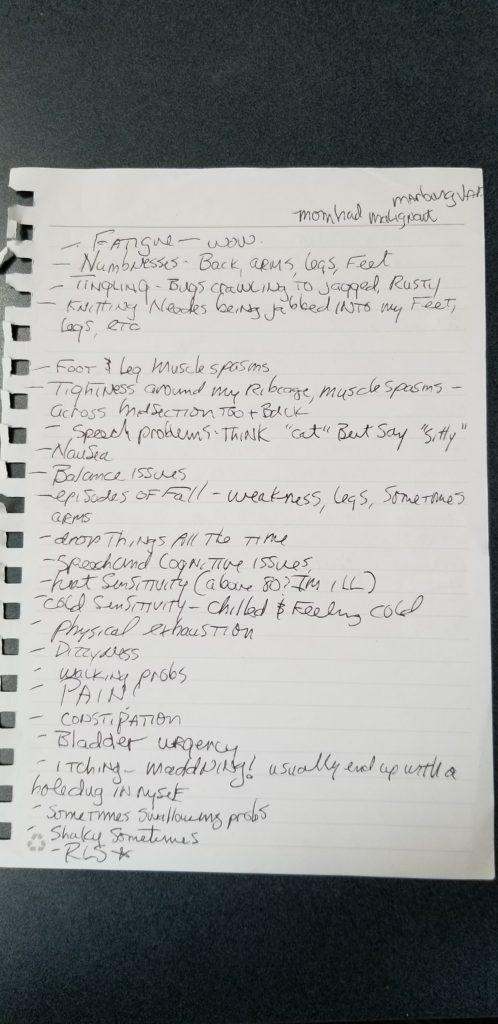 marburg VAR.
mom had malignant
- FATigue - wow.
- Numbnesses - Back, arms, legs, Feet
- TINgLINg - Bugs crawling To jagged, Rusty
- KNiTTINg Neades being jabbed INTO my Feet,
Legs, etc
- Foot & Leg Muscle spasms
- Tightness around my Ribcage, muscle spasms -
across midsection Too + Back
- speech problems - THINK "cat" But Say "sitty"
- Nausea
- Balance issues
- episodes of Fall - weakness, legs, sometimes
arms
- drop Things All The Time
- speech and Cognitive Issues,
- heat Sensitivity (above 80? I'm ILL)
- Cold Sensitivity - chilled & Feeling cold
- physical exhaustion
- Dizzyness
- walking probs
- PAIN!
- CONSTIPATION
- Bladder urgency
- ITCHINg - maddNINg! usually end up with a
hole dug IN myself
- Sometimes Swallowing probs
- Shaky Sometimes
- RLS ☆